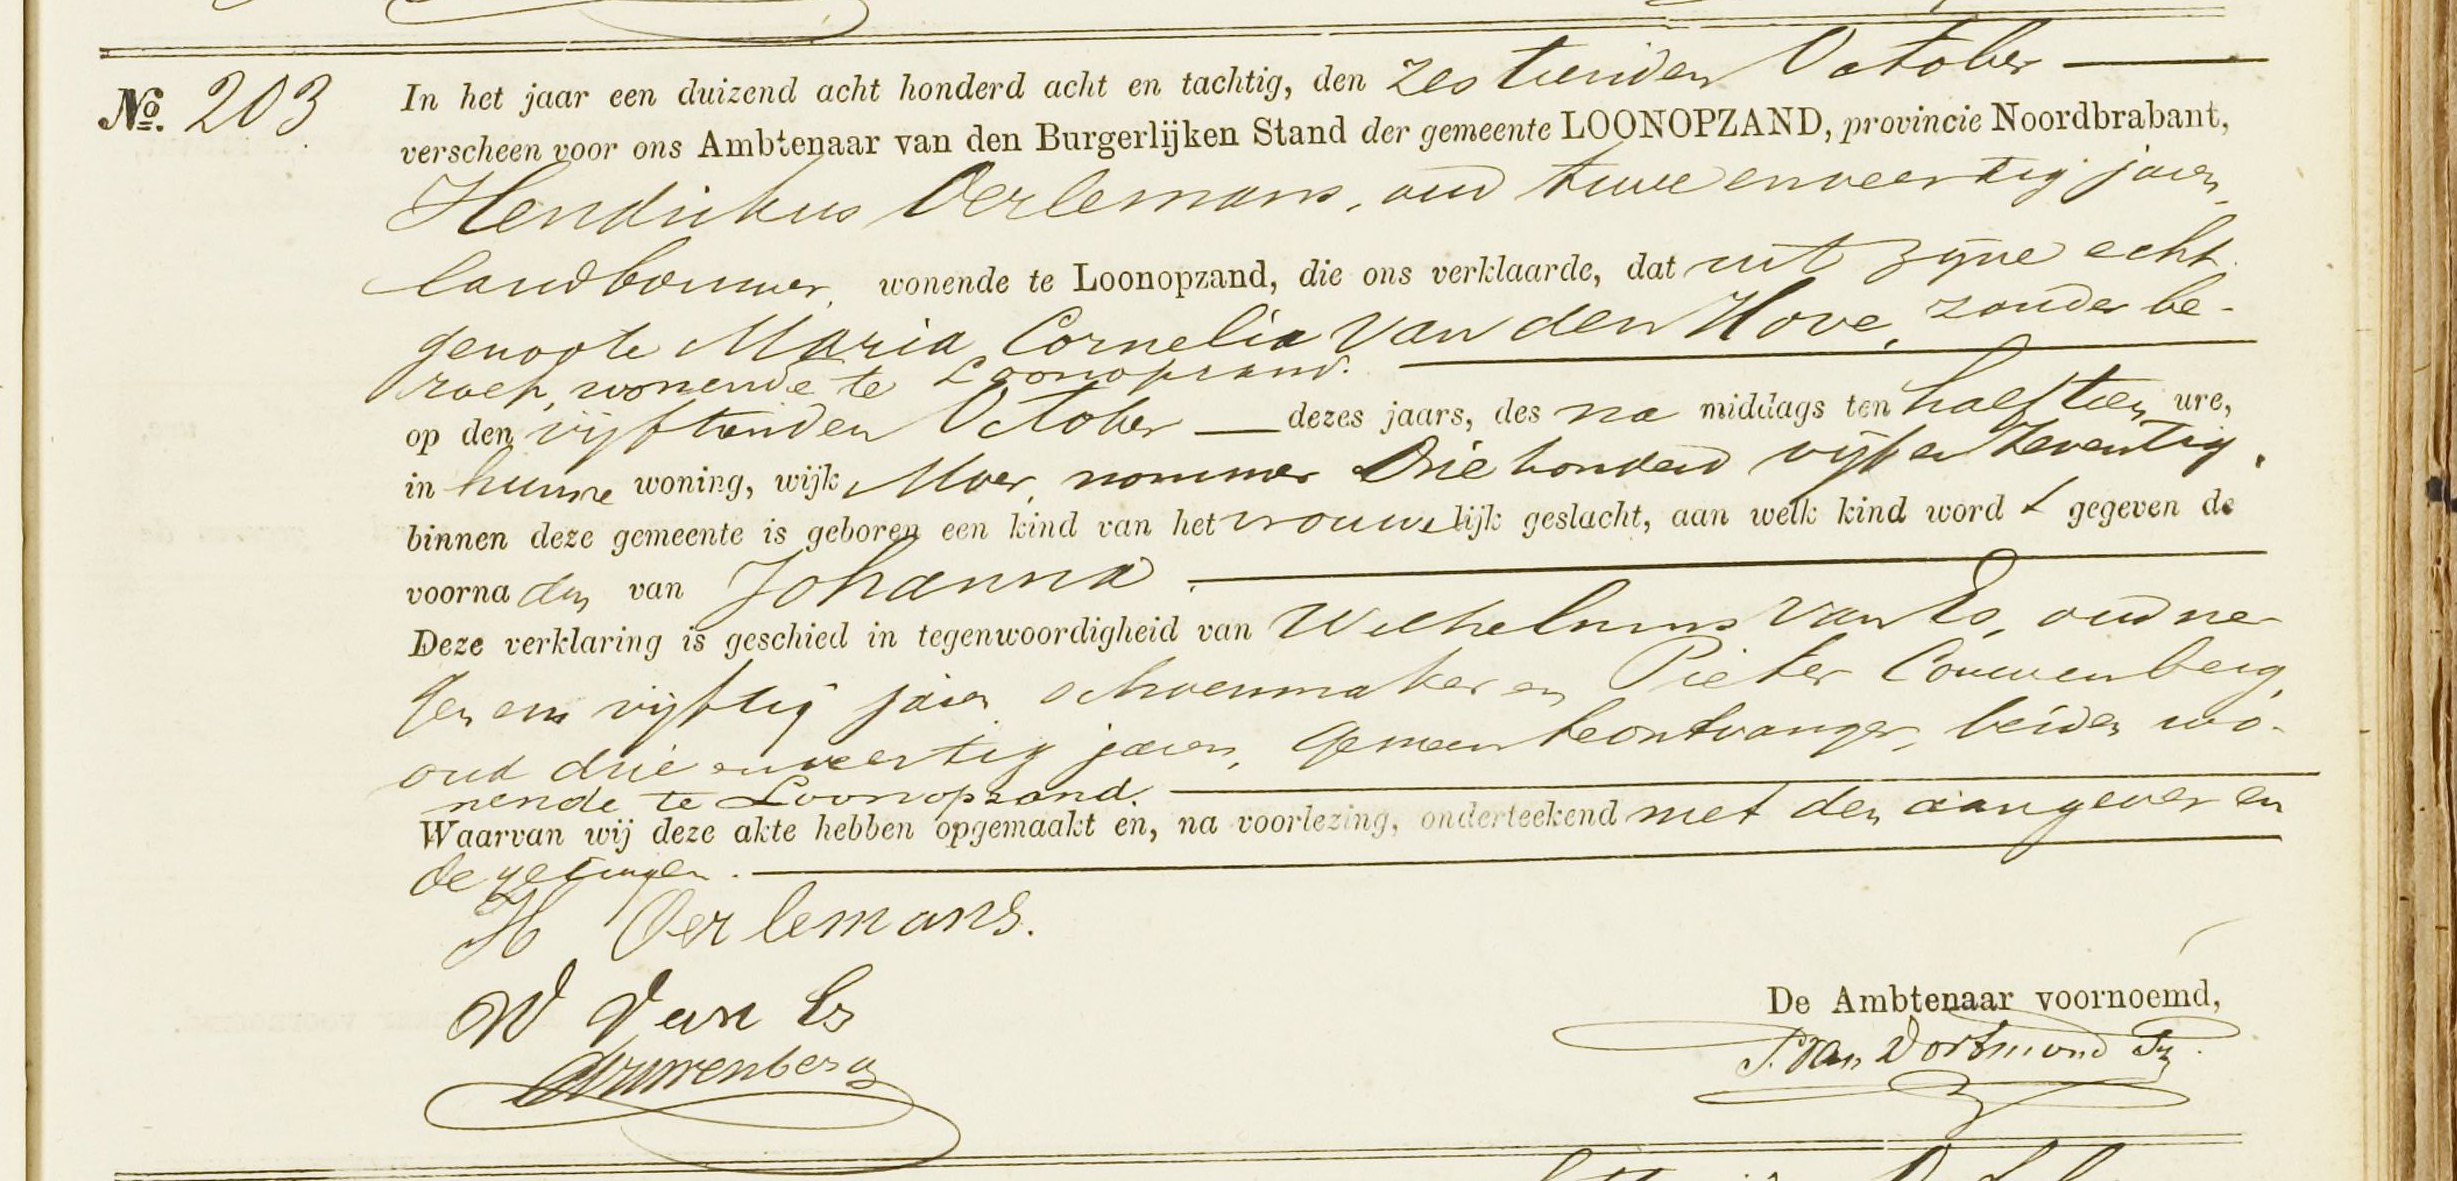 No. 203
In het jaar een duizend acht honderd acht en tachtig, den zestienden October
verscheen voor ons Ambtenaar van den Burgerlijken Stand der gemeente LOONOPZAND, provincie Noordbrabant,
Hendrikus Oerlemans, oud twee en veertig jaren,
landbouwer, wonende te Loonopzand, die ons verklaarde, dat uit zijne echt
genoote Maria Cornelia van den Hove, zonder be-
roep, wonende te Loonopzand.
op den vijftienden October dezes jaars, des na middags ten half tien ure,
in hunne woning, wijk Moer, nommer Driehonderd vijf en Zeventig,
binnen deze gemeente is geboren een kind van het vrouwelijk geslacht, aan welk kind word t gegeven de
voorna den van Johanna.
Deze verklaring is geschied in tegenwoordigheid van Wilhelmus van Es, oud ne
gen en vijftig jaren schoenmaker en Pieter Couwenberg,
oud drie en veertig jaren, Gemeenteontvanger, beiden wo-
nende te Loonopzand.
Waarvan wij deze akte hebben opgemaakt en, na voorlezing, onderteekend met den aangever en
de getuigen.
H Oerlemans.
W Van Es
De Ambtenaar voornoemd,
Couwenberg
P. van Dortmond Pz.